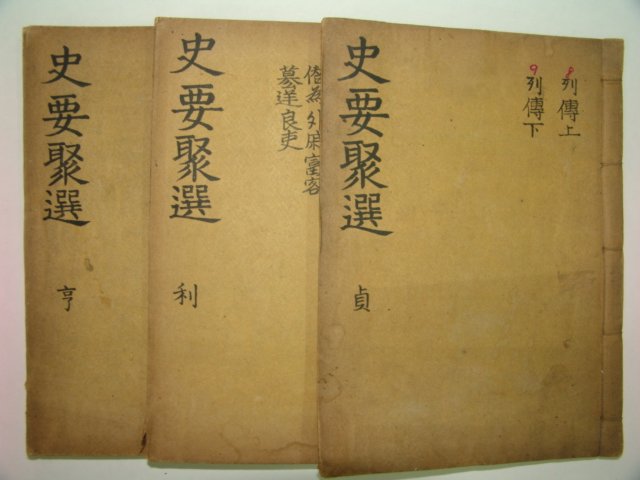 8列傳上
9列傳下
史要聚選
貞
外戚富客
良吏
史要聚選
利
史要聚選
亨